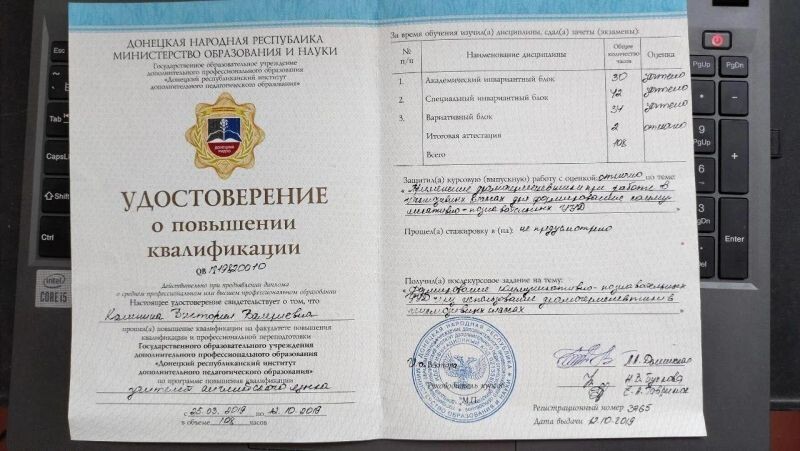 ДОНЕЦКАЯ НАРОДНАЯ РЕСПУБЛИКА
МИНИСТЕРСТВО ОБРАЗОВАНИЯ И НАУКИ
Государственное образовательное учреждение
дополнительного профессионального образования
«Донецкий республиканский институт
дополнительного педагогического образования»
УДОСТОВЕРЕНИЕ
о повышении
квалификации
QB
Действительно при предъявлении диплома
о среднем профессиональном или высшем профессиональном образовании
Настоящее удостоверение свидетельствует о том, что
Калинина Виктория Валериевна
прошел(а) повышение квалификации на факультете повышения
квалификации и профессиональной переподготовки
Государственного образовательного учреждения
дополнительного профессионального образования
«Донецкий республиканский институт
дополнительного педагогического образования»
по программе повышения квалификации
учителей английского языка
с 25.03.2019 по 12.10.2019
в объеме 108 часов
За время обучения изучил(а) дисциплины, сдал(а) зачеты (экзамены):
№ п/п Наименование дисциплины Общее количество часов Оценка
1. Академический инвариантный блок 30 зачтено
2. Специальный инвариантный блок 42 зачтено
3. Вариативный блок 34 зачтено
Итоговая аттестация 2 отлично
Всего 108
Защитил(а) курсовую (выпускную) работу с оценкой: отлично по теме:
при работе в
классах для формирования
познавательных УУД
Прошел(а) стажировку в (на): не предусмотрено
Получил(а) послекурсовое задание на тему:
Формирование познавательных
УУД использование
классах
Руководитель курсов
М.П.
Регистрационный номер 3965
Дата выдачи 12.10.2019
Esc
Tab
CapsL
Shift
Ctrl
intel
CORE i5
PgUp
PgDn
Enter